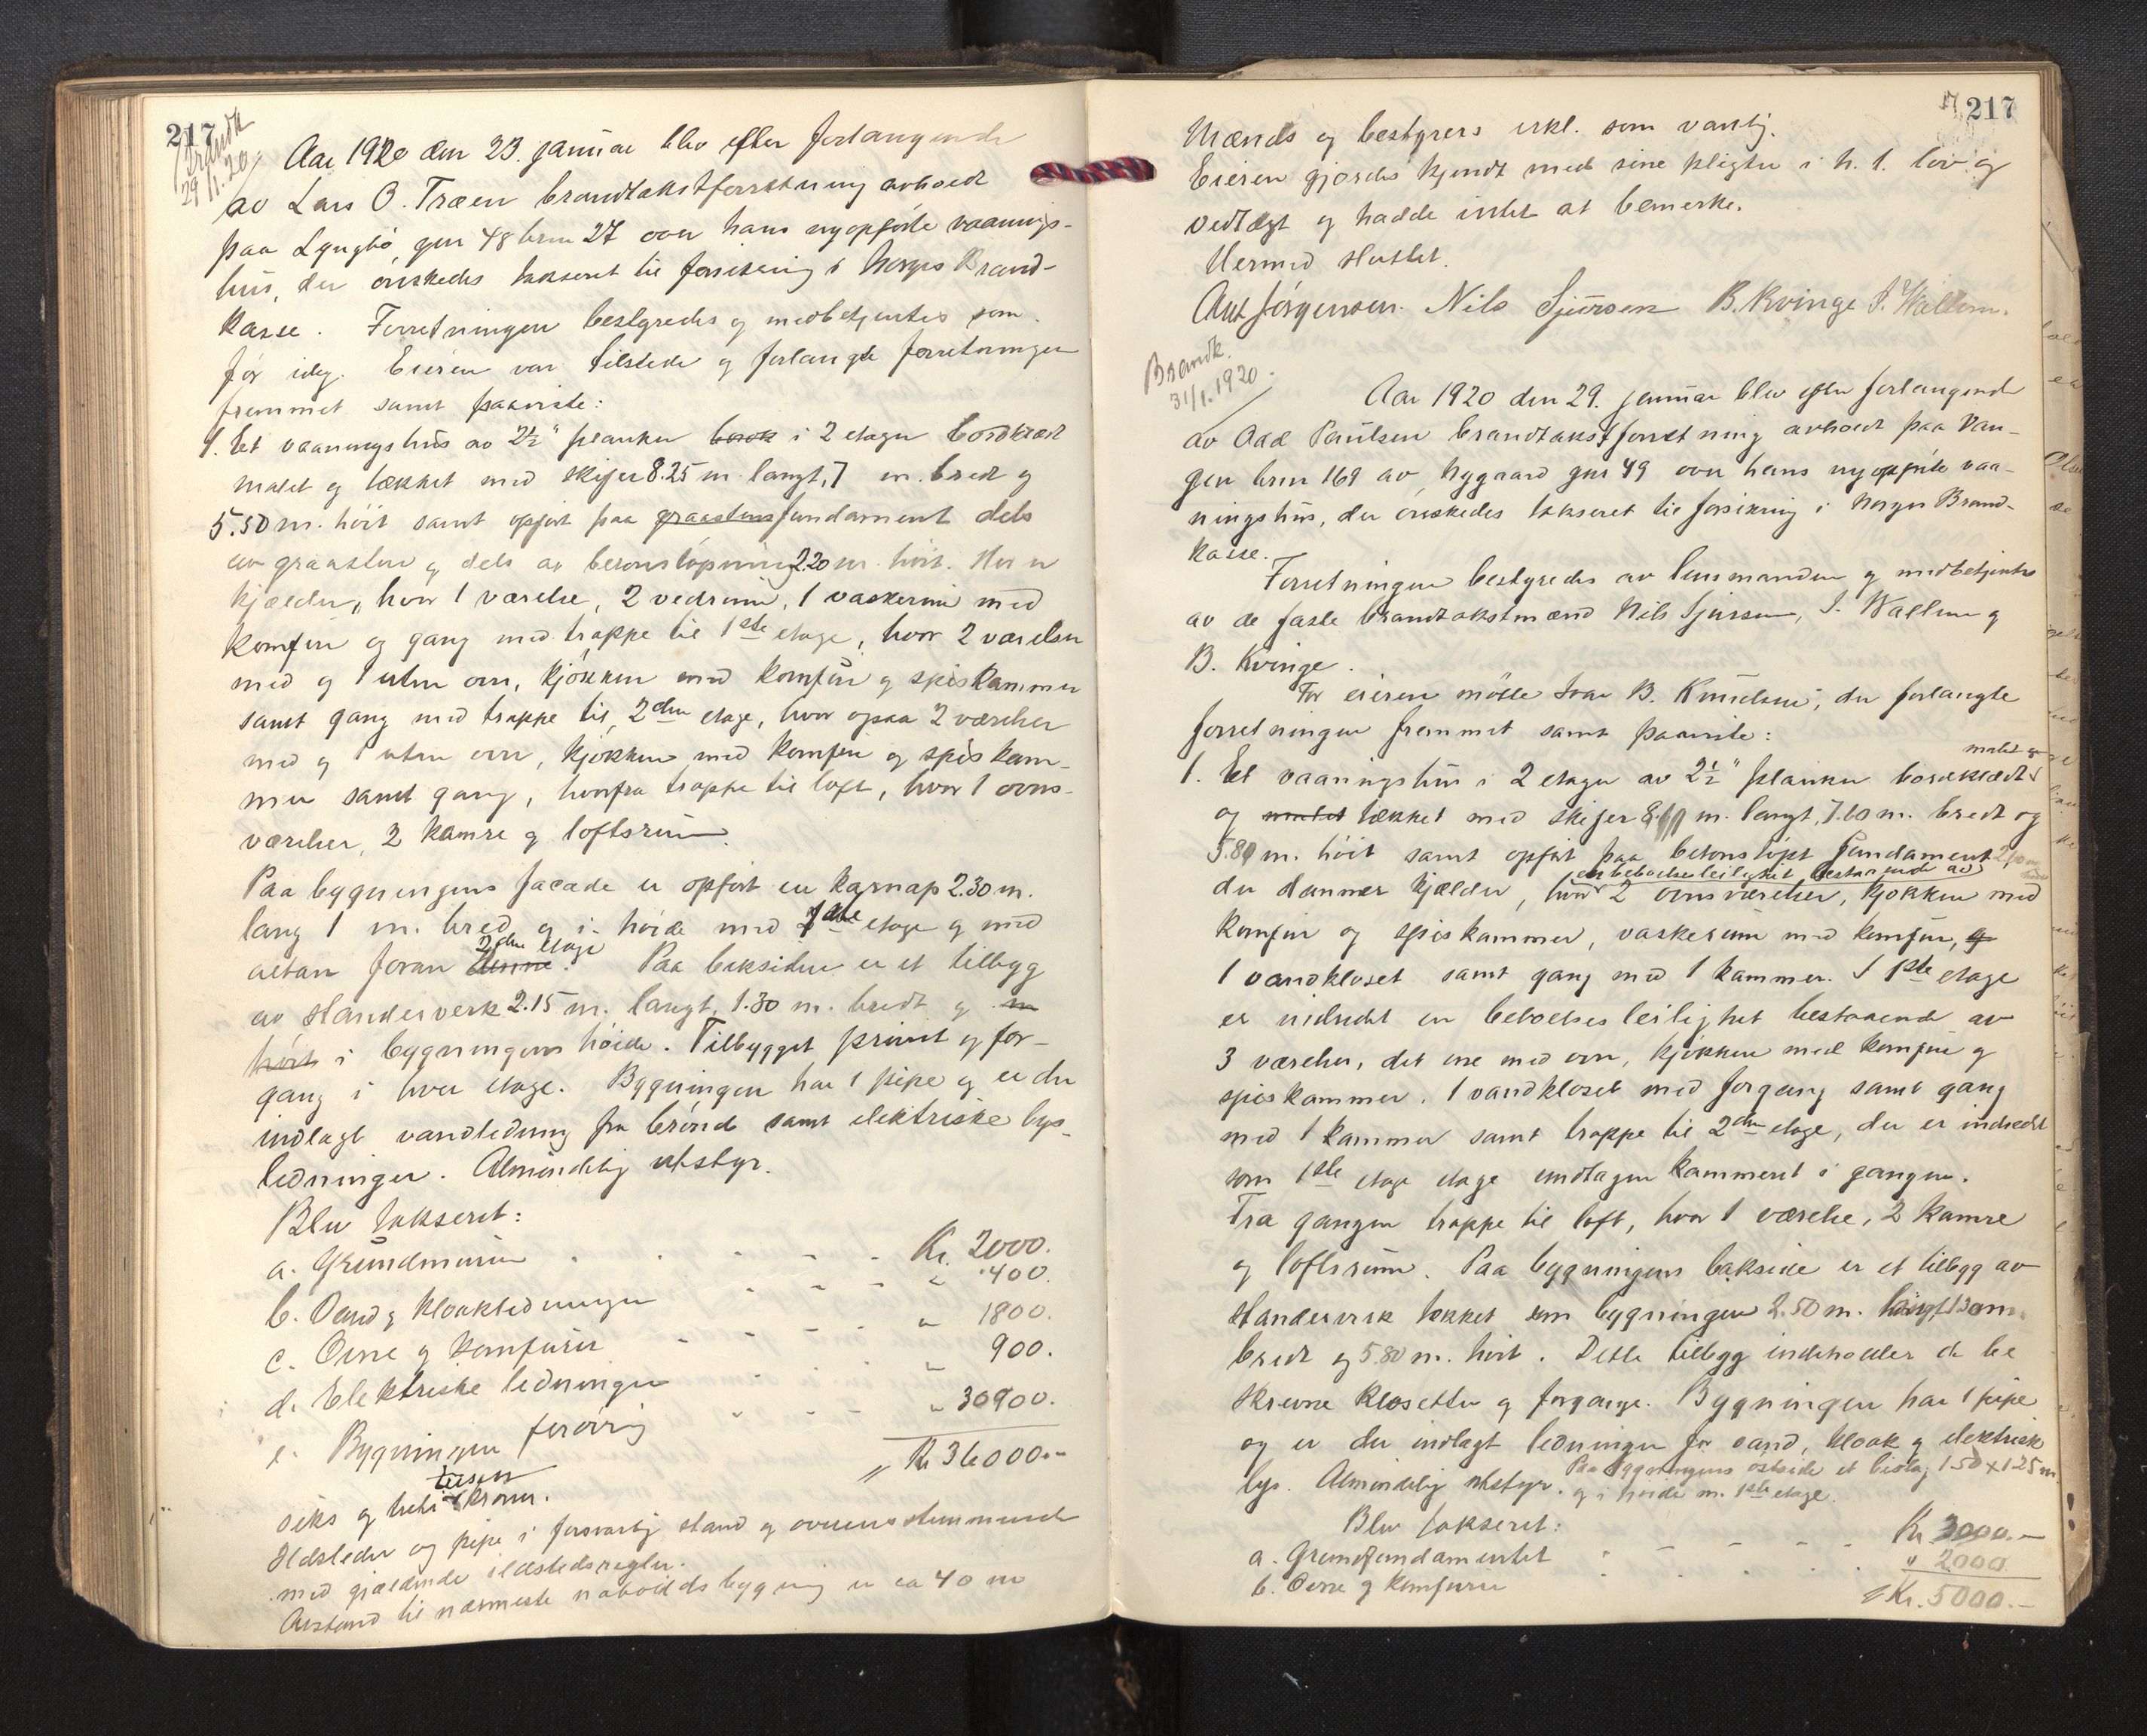 217
Brandk
29/1.20
Aar 1920 den 23. januar blev efter forlangende
av Lars O. Træen brandtakstforretning avholdt
paa Lyngbö, gnr 48 brnr 27 over hans nyopförte vaanings-
hus, der önskedes takseret til forsikring i Norges Brand-
kasse. Forretningen bestyredes og medbetjentes som
för idag. Eieren var tilstede og forlangte forretningen
fremmet samt paaviste:
1. Et vaaningshus av 2½" planker i 2 etager bordklædt
malet og tækket med skifer 8.25 m. langt, 7 m. bredt og
5.50 m. höit samt opfört paa graastens fundament dels
av graasten og dels av betonstöpning 2.20 m. höit. Her er
kjælder, hvor 1 værelse, 2 vedrum, 1 vaskerum med
komfur og gang med trappe til 1ste etage, hvor 2 værelser
med og 1 uten ovn, kjökken med komfur og spiskammer
samt gang med trappe til 2den etage, hvor ogsaa 2 værelser
med og 1 uten ovn, kjökken med komfur og spiskam-
mer samt gang, hvorfra trappe til loft, hvor 1 ovns-
værelse, 2 kamre og loftsrum.
Paa bygningens facade er opfört en karnap 2.30 m.
lang 1 m. bred og i höide med 1ste etage og med
altan foran denne. 2den etage Paa baksiden er et tilbygg
av standerverk 2.15 m. langt, 1.30 m. bredt og m
höit i bygningens höide. Tilbygget privet og for-
gang i hver etage. Bygningen har 1 pipe og er der
indlagt vandledning fra brönd samt elektriske lys-
ledninger. Almindelig utstyr.
Blev takseret:
a. Grundmuren Kr. 2000.
b. Vand og kloakledninger " 400.
c. Ovne og komfurer " 1800.
d. Elektriske ledninger " 900.
e. Bygningen forövrig " 30900.
Kr 36000.-
seks og treti tusen kroner.
Ildsteder og pipe i forsvarlig stand og overensstemmende
med gjældende ildstedsregler.
Avstand til nærmeste naboildsbygning er ca 40 m
217
Mænds og bestyrers erkl. som vanlig.
Eieren gjordes kjendt med sine pligter i h. t. lov og
vedtægt og hadde intet at bemerke.
Hermed sluttet.
Ant Jörgensen. Nils Sjursen B. Kvinge J. Wallem.
Brandk.
31/1.1920.
Aar 1920 den 29. januar blev efter forlangende
av Odd Paulsen brandtakstforretning avholdt paa Van-
gen brnr 169 av Nygaard gnr 49 over hans nyopförte vaa-
ningshus, der önskedes takseret til forsikring i Norges Brand-
kasse.
Forretningen bestyredes av lensmanden og medbetjentes
av de faste brandtakstmænd Nils Sjursen, J. Wallem og
B. Kvinge.
For eieren mötte Ivar B. Knudsen, der forlangte
forretningen fremmet samt paaviste:
malet og
1. Et vaaningshus i 2 etager av 2½" planker bordklædt
og malet tækket med skifer m. langt, 7.60 m. bredt og
5.80 m. höit samt opfört paa betonstöpt fundament
en beboelsesleilighet bestaaende av
der danner kjælder, hvor 2 ovnsværelser, kjökken med
komfur og spiskammer, vaskerum med komfur, og
1 vandkloset samt gang med 1 kammer. I 1ste etage
er indredet en beboelsesleilighet bestaaende av
3 værelser, det ene med ovn, kjökken med komfur og
spiskammer. 1 vandkloset med forgang samt gang
med 1 kammer samt trappe til 2den etage, der er indredet
som 1ste etage etage undtagen kammeret i gangen.
Fra gangen trappe til loft, hvor 1 værelse, 2 kamre
og loftsrum. Paa bygningens bakside er et tilbygg av
standerverk tækket som bygningen 2.50 m. langt 1.30 m.
bredt og 5.80 m. höit. Dette tilbygg indeholder de be
skrevne klosetter og forgange. Bygningen har 1 pipe
og er der indlagt ledninger for vand, kloak og elektrisk
lys. Almindelig utstyr. Paa bygningens östside et bislag 1.50 x 1.25 m
og i höide m. 1ste etage.
Blev takseret:
a. Grundfundamentet Kr 3000.-
b. Ovne og komfurer " 2000
Kr. 5000.-